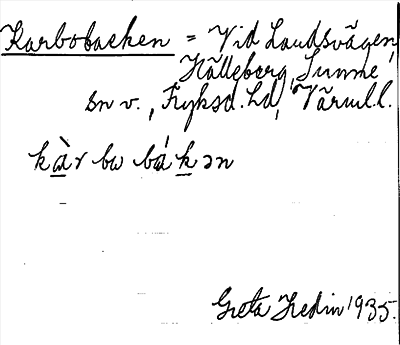 Karbobacken = Vid Landsvägen,
Hälleberg, Sunne
sn v., Fryksd. hd, Värml.
kàr bo bákən
Greta Hedin 1935.